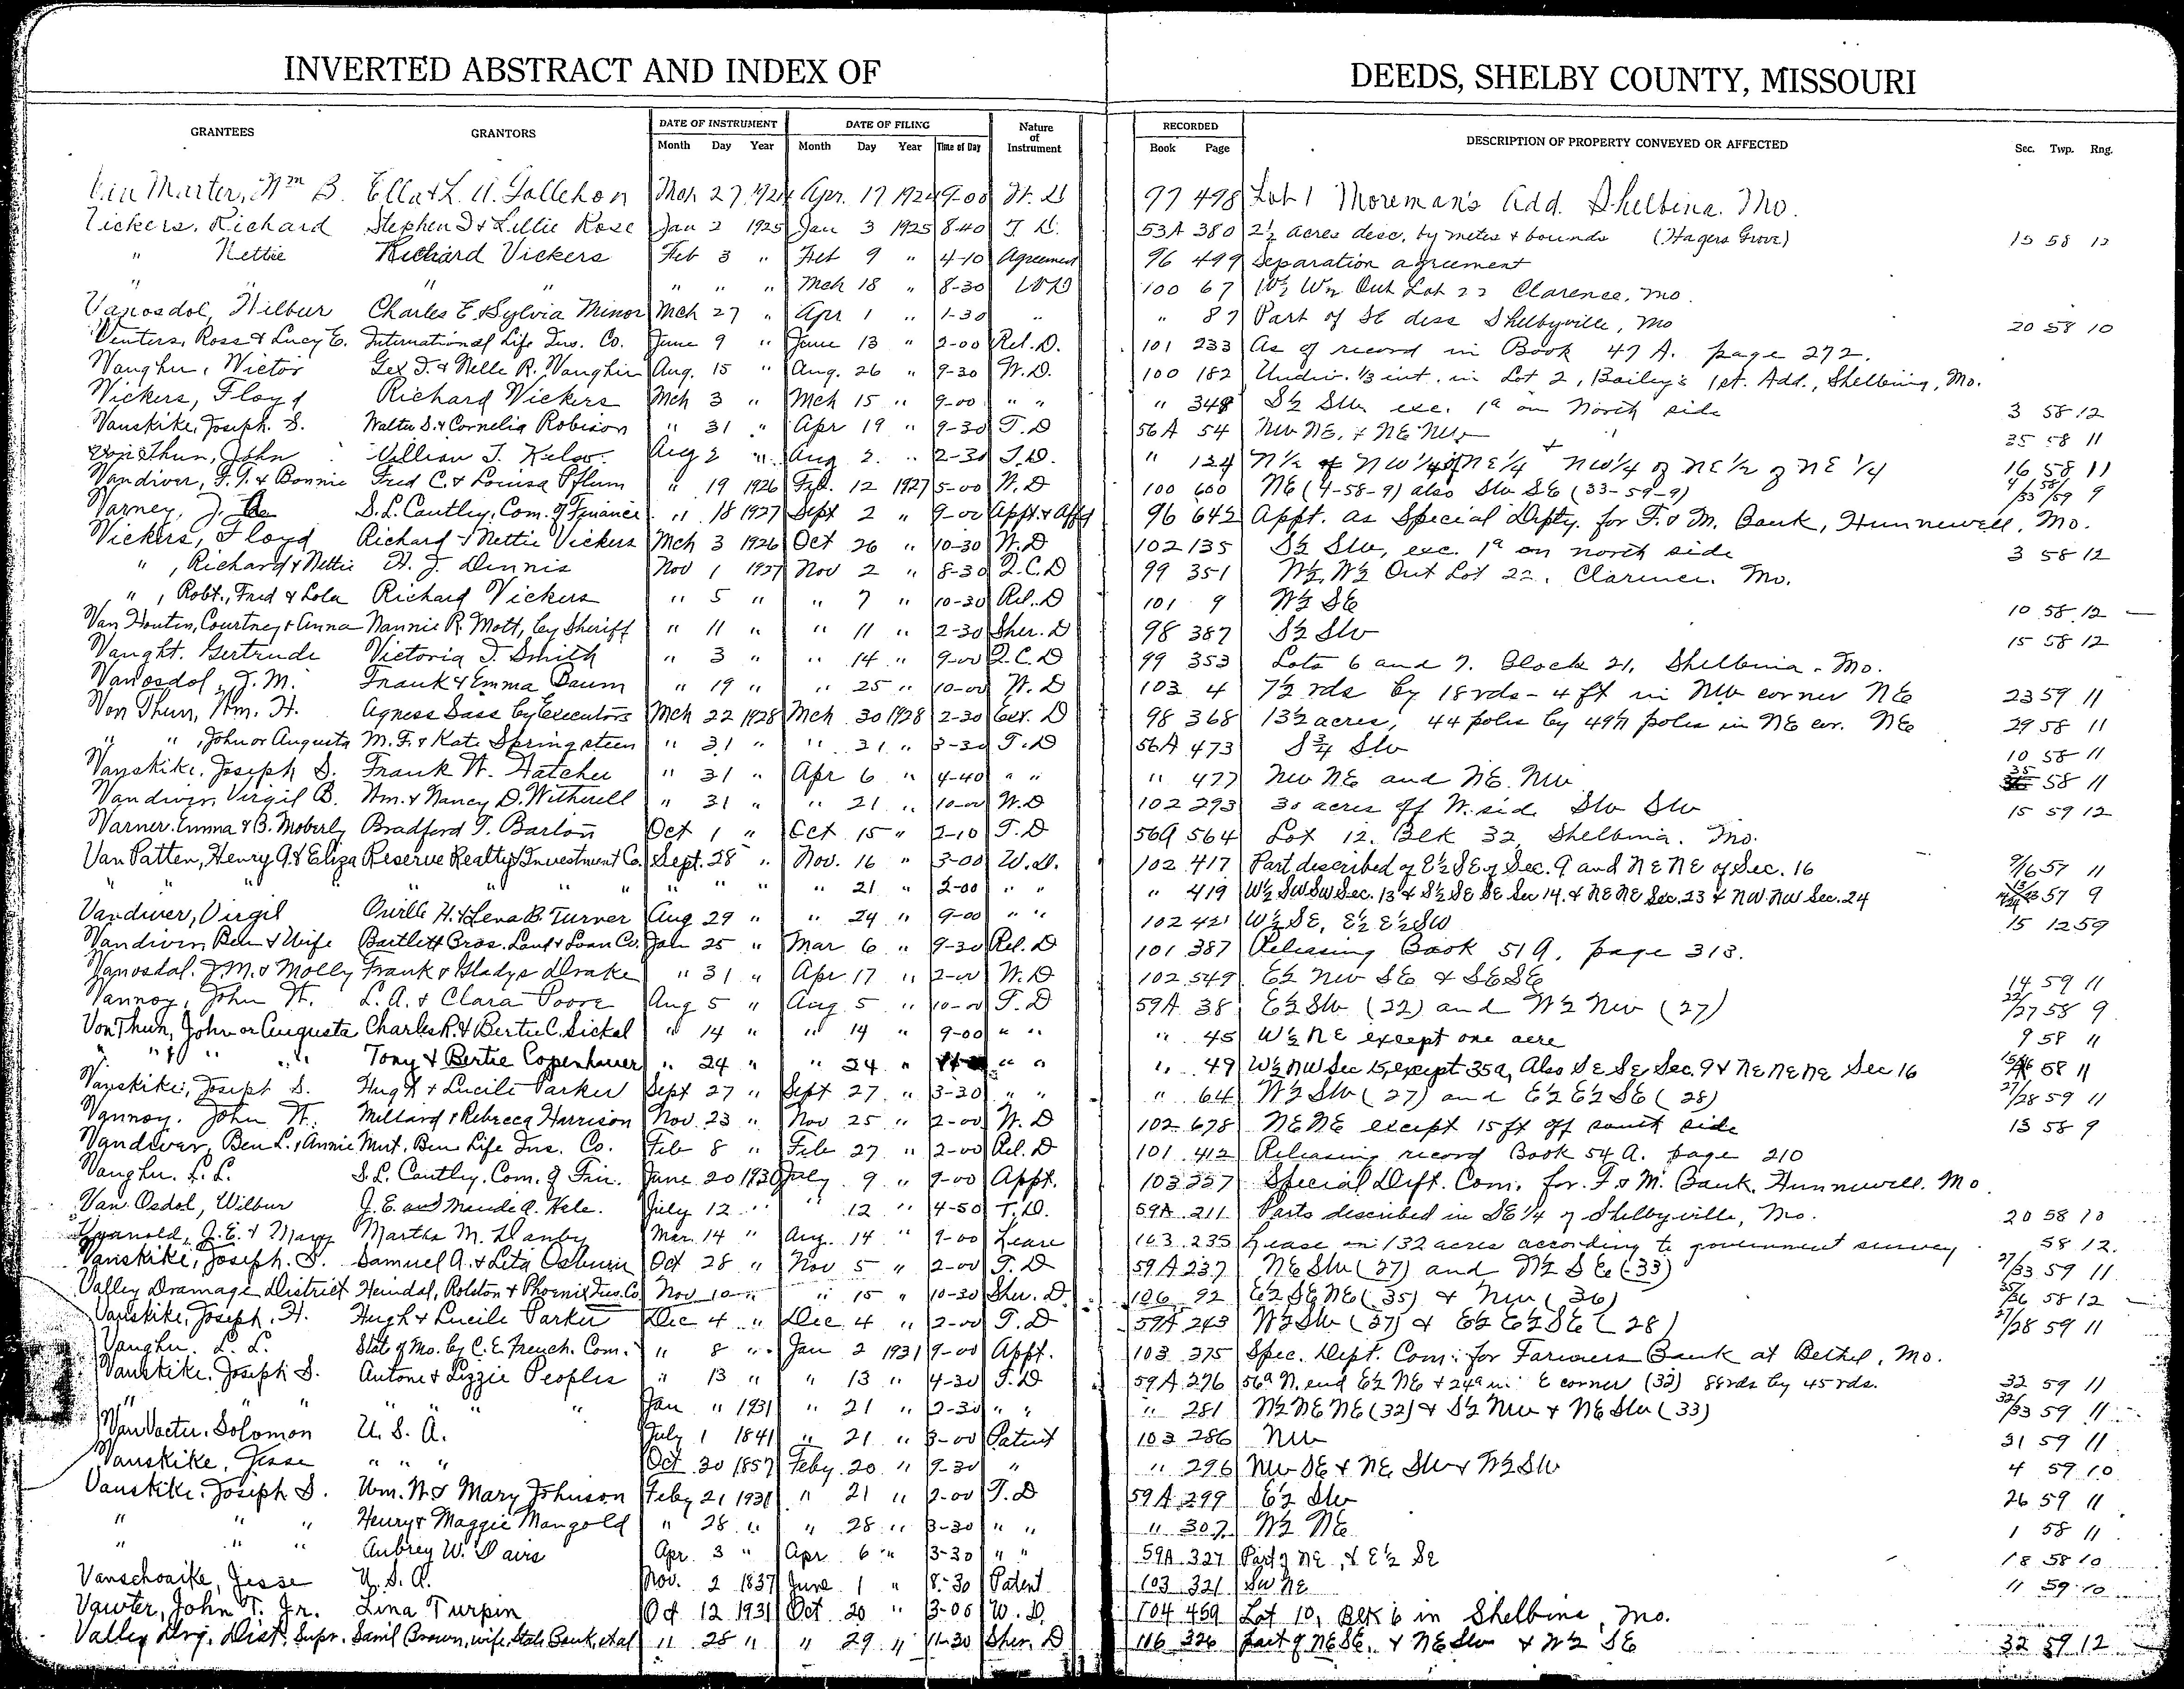 INVERTED ABSTRACT AND INDEX OF DEEDS, SHELBY COUNTY, MISSOURI
GRANTEES GRANTORS DATE OF INSTRUMENT DATE OF FILING Nature of Instrument RECORDED DESCRIPTION OF PROPERTY CONVEYED OR AFFECTED Sec. Twp. Rng.
Month Day Year Month Day Year Time of Day Book Page
Van Marter, Wm B. Ella & L. A. Gollehon Mar 27 1924 Apr. 17 1924 9-00 W. D 97 498 Lot 1 Moreman's Add. Shelbina. Mo.
Vickers, Richard Stephen D & Lillie Rose Jan 2 1925 Jan 3 1925 8-40 T. D. 53A 380 2½ acres desc. by metes & bounds (Hagers Grove) 58 12
" Nettie Richard Vickers Feb 3 " Feb 9 " 4-10 Agreement 96 499 Separation agreement
" " " " " " Mch 18 " 8-30 100 67 Out Lot 22 Clarence, Mo.
Vanosdol, Wilbur Charles E. & Sylvia Minor Mch 27 " Apr 1 " 1-30 " " 87 Part of SE desc Shelbyville, Mo 20 58 10
Venters, Ross & Lucy E. International Life Ins. Co. June 9 " June 13 " 2-00 Rel. D. 101 233 As of record in Book 47 A. page 272.
Vaughn, Victor Gex T. & Nelle R. Vaughn Aug. 15 " Aug. 26 " 9-30 W. D. 100 182 Undiv. 1/3 int. in Lot 2, Bailey's 1st. Add., Shelbina, Mo.
Vickers, Floyd Richard Vickers Mch 3 " Mch 15 " 9-00 " " " 348 S½ SW exc. 1a on North side 3 58 12
Vanskike, Joseph. S. Walter S. & Cornelia Robison " 31 " Apr 19 " 9-30 T. D 56A 54 NW NE. & NE NW 35 58 11
Von Thun, John William T. Kelso. Aug 2 " Aug 2. " 2-30 T. D. " 124 N½ of NW¼ of NE¼ + NW¼ of NE½ of NE¼ 16 58 11
Vandiver, F. T. & Bonnie Fred C. & Louisa Pflum " 19 1926 Feb. 12 1927 5-00 W. D 100 600 NE (4-58-9) also SW SE (33-59-9) 4/33 58/59 9
Varney, J. S. L. Cantley, Com. of Finance " 18 1927 Sept 2 " 9-00 Appt. & Aff'd 96 642 Appt. as Special Depty. for F. & M. Bank, Hunnewell, Mo.
Vickers, Floyd Richard & Nettie Vickers Mch 3 1926 Oct 26 " 10-30 W. D 102 135 S½ SW, exc. 1a on north side 3 58 12
" , Richard & Nettie H. J. Dennis Nov 1 1927 Nov 2 " 8-30 Q. C. D 99 351 W½, W½ Out Lot 22. Clarence. Mo.
" , Robt., Fred & Lola Richard Vickers " 5 " " 7 " 10-30 Rel. D 101 9 W½ SE 10 58 12
Van Houten, Courtney & Anna Nannie R. Mott, by Sheriff " 11 " " 11 " 2-30 Sher. D 98 387 S½ SW 15 58 12
Vaught. Gertrude Victoria T. Smith " 3 " " 14 " 9-00 Q. C. D 99 353 Lots 6 and 7. Block 21, Shelbina. Mo.
Vanosdol, J. M. Frank & Emma Baum " 19 " " 25 " 10-00 W. D 103 4 7½ rds by 18 rds - 4 ft in NW corner NE 23 59 11
Von Thun, Wm. H. Agness Sass by Executors Mch 22 1928 Mch 30 1928 2-30 Exr. D 98 368 13½ acres, 44 poles by 49 1/11 poles in NE cor. NE 29 58 11
" " , John or Augusta M. F. & Kate Springsteen " 31 " " 31 " 3-30 T. D 56A 473 S¾ SW 10 58 11
Vanskike. Joseph S. Frank W. Hatcher " 31 " Apr 6 " 4-40 " " " 477 NW NE and NE. NW 35 58 11
Vandiver, Virgil B. Wm. & Nancy D. Witherell " 31 " " 21 " 10-00 W. D 102 293 30 acres off W. side SW SW 15 59 12
Varner. Emma & B. Moberly Bradford T. Barton Oct 1 " Oct 15 " 2-10 T. D 56A 564 Lot 12. Blk 32, Shelbina. Mo.
Van Patten, Henry A. & Eliza Reserve Realty & Investment Co. Sept. 28 " Nov. 16 " 3-00 W. D. 102 417 Part described of E½ SE of Sec. 9 and NE NE of Sec. 16 9/16 57 11
" " " " " " " " " " 21 " 2-00 " " " 419 W½ SW SW Sec. 13 & S½ SE SE Sec 14. & NE NE Sec. 23 & NW. NW Sec. 24 57 9
Vandiver, Virgil Orville H. & Lena B. Turner Aug 29 " " 24 " 9-00 " " 102 421 W½ SE, E½ E½ SW 15 12 59
Vandiver, Ben & Wife Bartlett Bros. Land & Loan Co. Jan 25 " Mar 6 " 9-30 Rel. D 101 387 Releasing Book 51A, page 313.
Vanosdal. J. M. & Molly Frank & Gladys Drake " 31 " Apr 17 " 2-00 W. D 102 549 E½ NW SE & SE SE 14 59 11
Vannoy, John W. L. A. & Clara Poore Aug 5 " Aug 5 " 10-00 T. D 59A 38 E½ SW (22) and W½ NW (27) 22/27 58 9
Von Thun, John or Augusta Charles R. & Bertie C. Sickal " 14 " " 14 " 9-00 " " " 45 W½ NE except one acre 9 58 11
" " " " Tony & Bertie Copenhaver " 24 " " 24 " " " " 49 W½ NW Sec 15, except 35a, Also SE SE Sec. 9 & NE NE NE Sec 16 58 11
Vanskike, Joseph S. Hugh & Lucile Parker Sept 27 " Sept 27. " 3-30 " " " 64 W½ SW (27) and E½ E½ SE (28) 27/28 59 11
Vannoy. John W. Millard & Rebecca Harrison Nov. 23 " Nov 25 " 2-00 W. D 102 678 NE NE except 15 ft off south side 13 58 9
Vandiver, Ben L. & Annie Mut. Ben Life Ins. Co. Feb 8 " Feb 27 " 2-00 Rel. D 101 412 Releasing record Book 54 A. page 210
Vaughn. L. L. S. L. Cantley. Com. of Fin. June 20 1930 July 9 " 9-00 Appt. 103 227 Special Dept. Com. for. F. & M. Bank. Hunnewell. Mo
Van. Osdol, Wilbur J. E. and Maude A. Hale. July 12 " " 12 " 4-50 T. D. 59A 211 Parts described in SE¼ of Shelbyville, Mo. 20 58 10
J. E. & Mary Martha M. Danby Mar. 14 " Aug. 14 " 9-00 Lease 103 235 Lease on 132 acres according to government survey 58 12.
Vanskike, Joseph. S. Samuel A. & Leta Osburn Oct 28 " Nov 5 " 2-00 T. D 59A 237 NE SW (27) and N½ SE (33) 27/33 59 11
Valley Drainage District Heindel, Rolston & Phoenix Ins. Co Nov 10 " " 15 " 10-30 Sher. D 106 92 E½ SE NE (35) & NW (36) 35/36 58 12
Vanskike, Joseph. H. Hugh & Lucile Parker Dec 4 " Dec. 4 " 2-00 T. D 59A 243 W½ SW (27) & E½ E½ SE (28) 27/28 59 11
Vaughn. L. L. State of Mo. by C. E. French. Com. " 8 " Jan 2 1931 9-00 Appt. 103 275 Spec. Dept. Com. for Farmers Bank at Bethel, Mo.
Vanskike. Joseph S. Antone & Lizzie Peoples " 13 " " 13 " 4-30 T. D 59A 276 56a N. end E½ NE & 24a in E corner (32) 88 rds by 45 rds. 32 59 11
" " " " Jan " 1931 " 21 " 2-30 " " " 281 N½ NE NE (32) & S½ NW & NE SW (33) 32/33 59 11
Van Vacter. Solomon U. S. A. July 1 1841 " 21 " 3-00 Patent 103 286 NW 31 59 11
Vanskike, Jesse " " " Oct 30 1857 Feby 20 " 9-30 " " 296 NW SE & NE SW & W½ SW 4 59 10
Vanskike. Joseph S. Wm. N. & Mary Johnson Feby 21 1931 " 21 " 2-00 T. D 59A 299 E½ SW 26 59 11
" " " Henry & Maggie Mangold " 28 " " 28 " 3-30 " " " 307 W½ NE 1 58 11
" " " Aubrey W. Davis Apr. 3 " Apr 6 " 3-30 " " 59A 327 Part of NE, & E½ SE 18 58 10
Vanschoaike, Jesse U. S. A. Nov. 2 1837 June 1 " 8-30 Patent 103 321 SW NE 11 59 10
Vawter, John T. Jr. Lina Turpin Oct 12 1931 Oct 20 " 3-05 W. D. 104 459 Lot 10, Blk 6 in Shelbina, Mo.
Valley Drg. Dist. Supr. Saml Brown, wife, State Bank, et al " 28 " " 29 " 11-30 Sher. D 116 326 part of NE SE. & NE SW & W½ SE 32 59 12